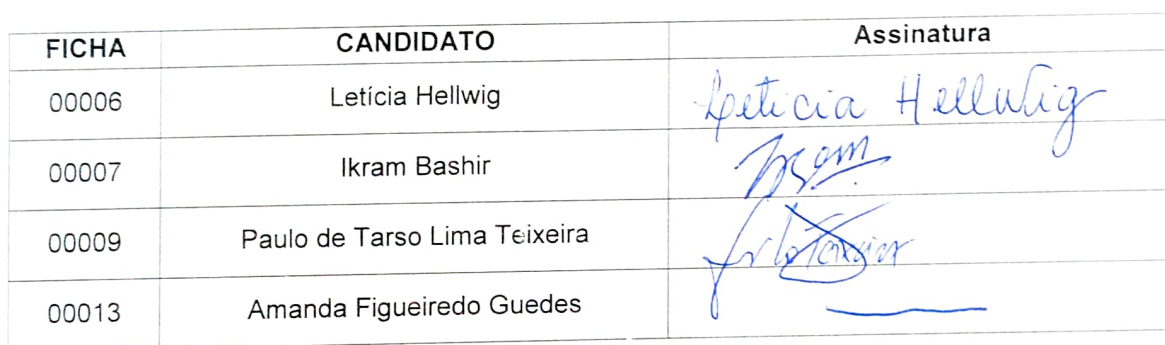 FICHA CANDIDATO Assinatura
00006 Letícia Hellwig Leticia Hellwig
00007 Ikram Bashir
00009 Paulo de Tarso Lima Teixeira Teixeira
00013 Amanda Figueiredo Guedes